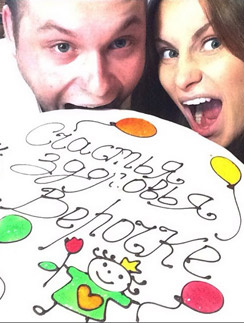 Счастья
Здоровья
Верочке